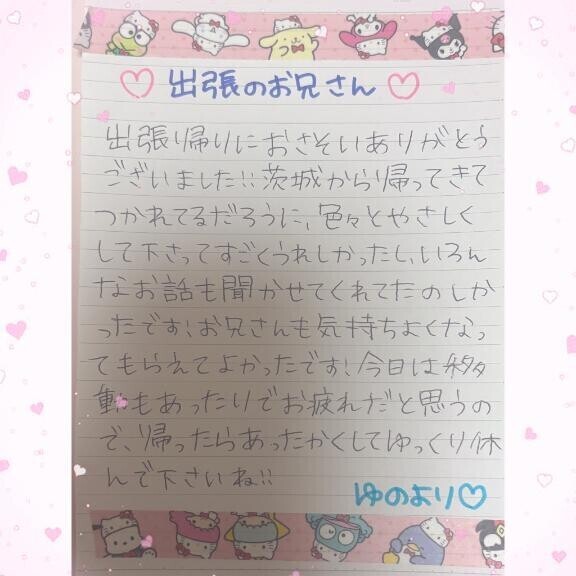 ♡ 出張のお兄さん ♡
出張帰りにおさそいありがとう
ございました!!茨城から帰ってきて
つかれてるだろうに、色々とやさしく
して下さってすごくうれしかったし、いろん
なお話も聞かせてくれてたのしか
ったです!お兄さんも気持ちよくなっ
てもらえてよかったです!今日は移
動もあったりでお疲れだと思うの
で、帰ったらあったかくしてゆっくり休
んで下さいね!!
ゆのより♡